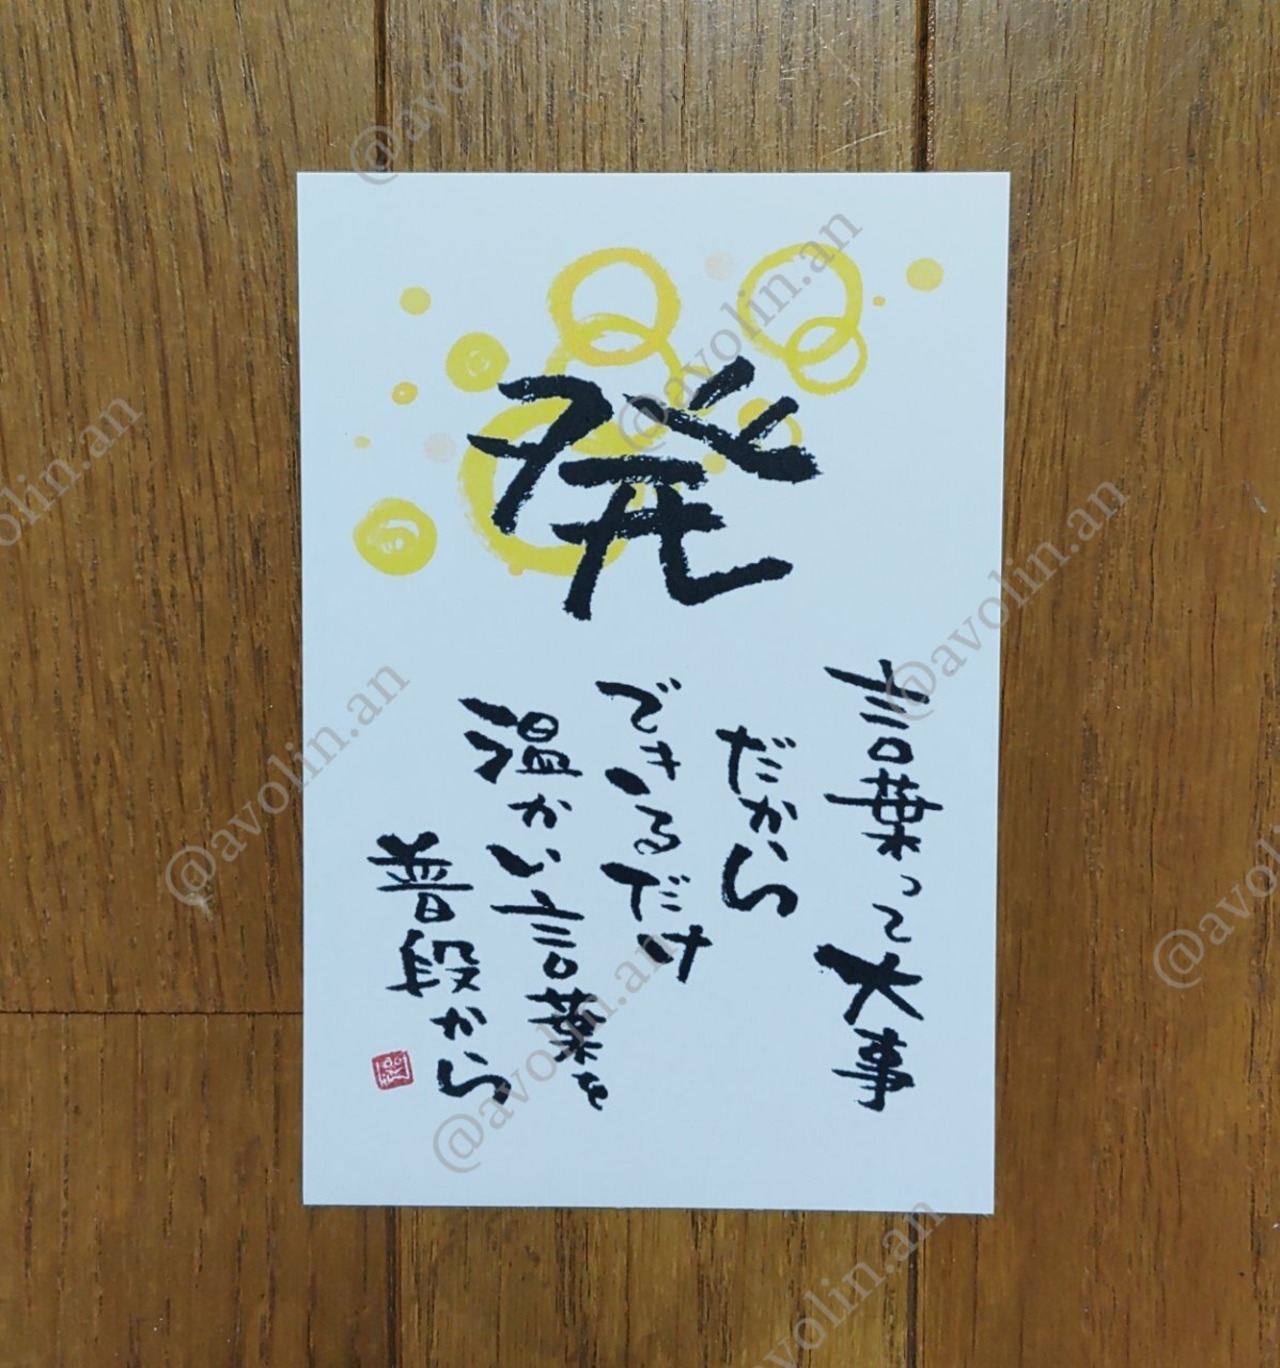 発
言葉って大事
だから
できるだけ
温かい言葉を
普段から
@avolin.an
@avolin.an
@avolin.an
@avolin.an
@avolin.an
@avolin.an